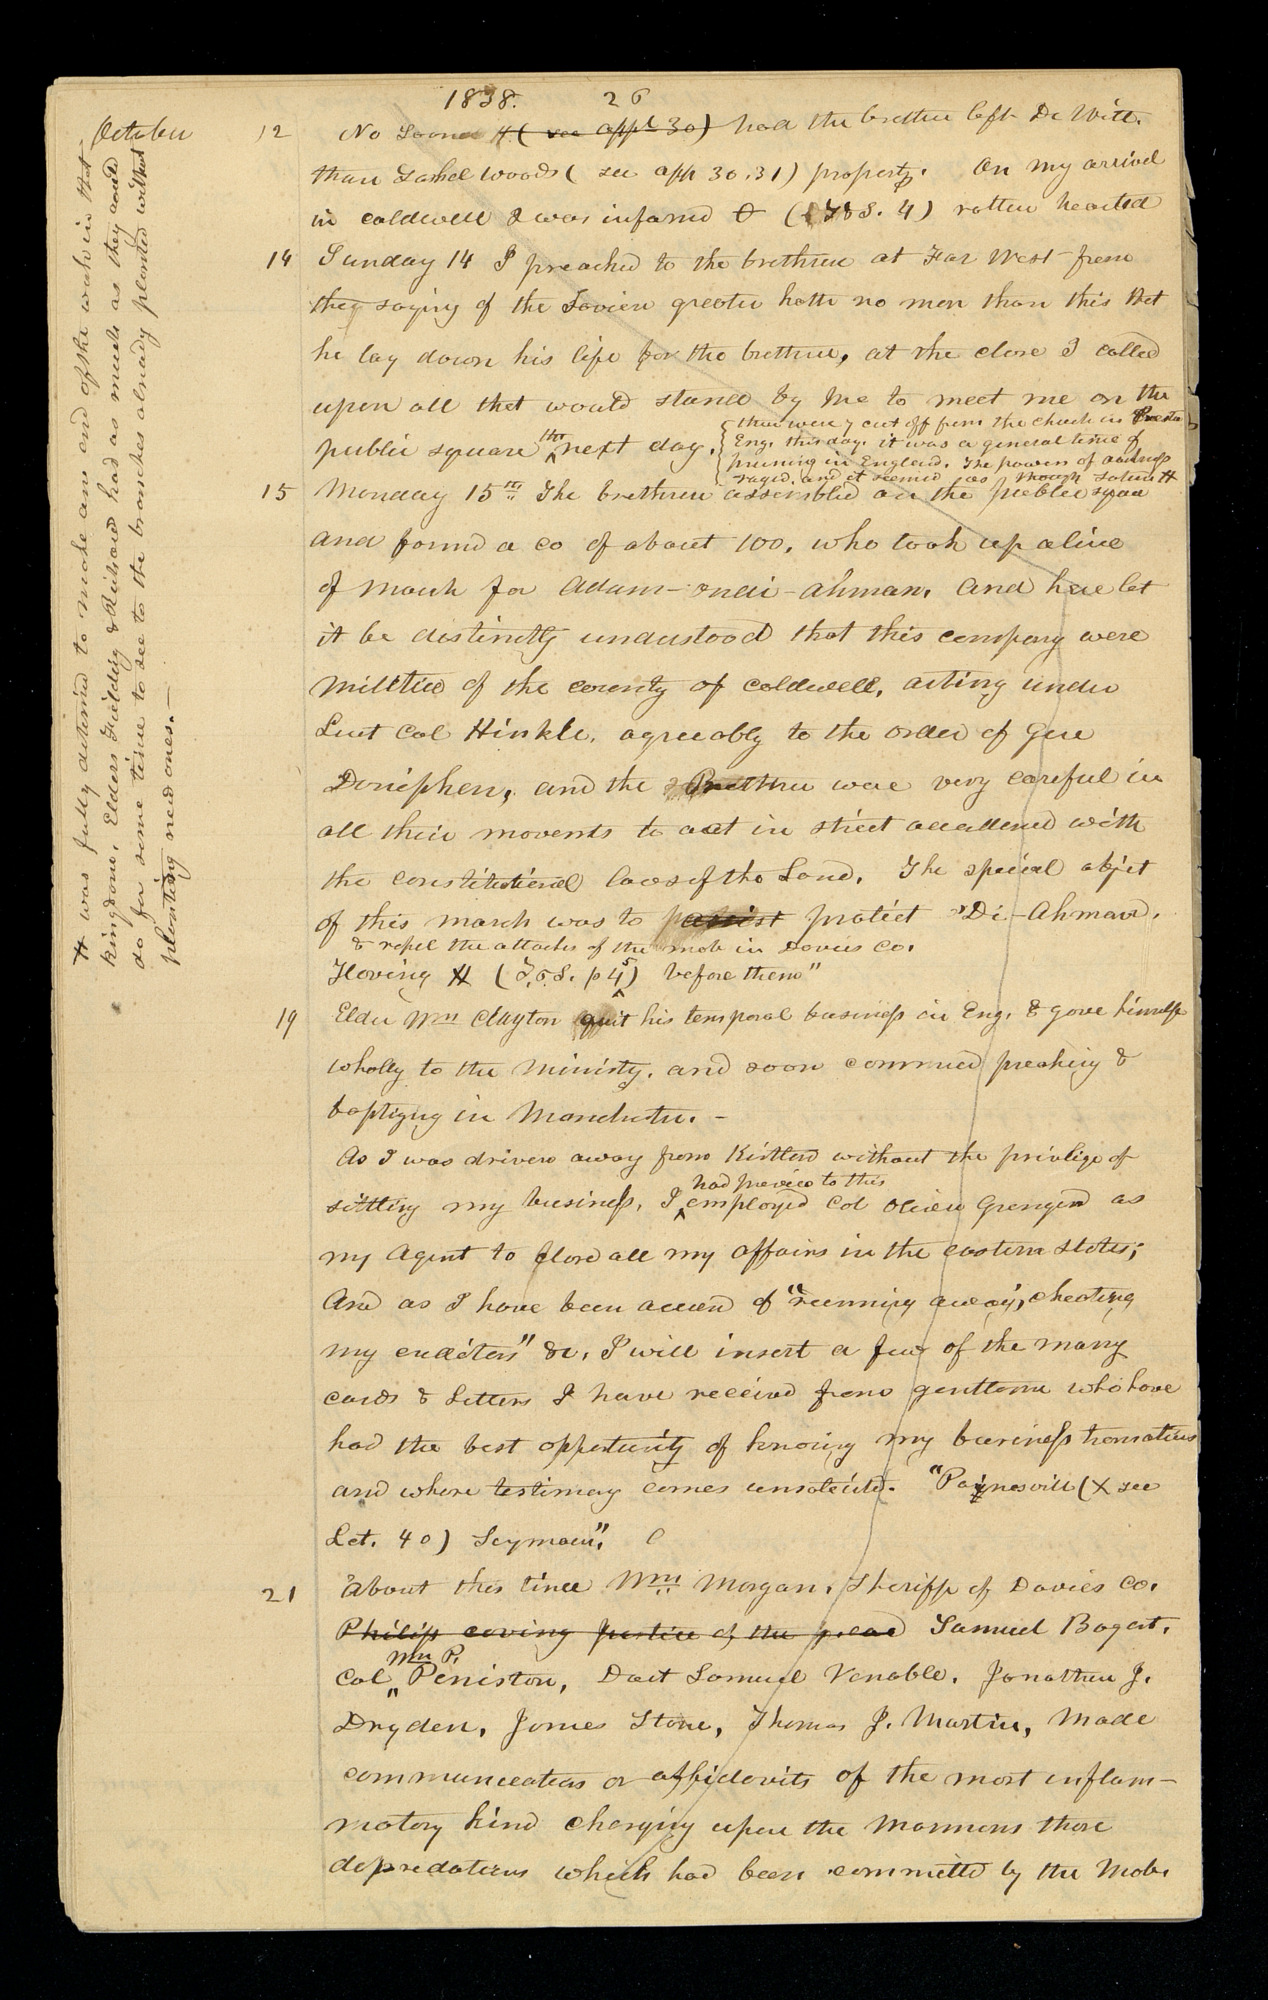 1838. 26
October 12 No Sooner H (see appe 30) had the brethren left De Witt.
than Sashel woods (see app 30.31) property. On my arrival
in caldwell I was informed (T&S. 4) rotten hearted
14 Sunday 14 I preached to the brethren at Far West from
the saying of the Savior greater hath no man than this that
he lay down his life for the brethren, at the close I called
upon all that would stand by me to meet me on the
public square the next day.
{there were 7 cut off from the church in Preston
Eng. this day. it was a general time of
pruning in England. The powers of darkness
raged, and it seemed as though Satan H
15 Monday 15th The brethren assembled on the public squae
and formd a co of about 100. who took up a line
of march for Adam-ondi-Ahman. And here let
it be distinctly understood that this company were
militia of the county of caldwell, acting under
Luet Col Hinkle. agreeably to the order of Gen
Doniphen, and the Brethren were very careful in
all their movents to act in strict accordance with
the constitutional laws of the Land. The special objet
of this march was to protect Di-Ahman.
& repel the attacks of the mob in Davies co.
Having H (T.&S. p 45) before them"
19 Elder Wm Clayton quit his temporal business in Eng. & gave himself
wholly to the Ministy. and soon commend preaching &
baptizing in Manchester. -
As I was driven away from Kirtland without the privlige of
settling my business, I had previous to this employed Col Oliver Granger as
my Agent to close all my affairs in the eastern States;
And as I have been accused of "running away, cheating
my creditors" &c. I will insert a few of the many
cards & Letters I have received from gentlemen who have
had the best opportunity of knowing my business transations
and whose testimony comes unsolicited. "Painesvill (X see
Let. 40) Seymour".
21 About this time Wm Morgan. Sheriff of Davies co.
Philip coving Justice of the peace Samuel Bogart.
Col Wm P. Peniston, Doct Samuel Venable. Jonathan J.
Dryden, James Stone, Thomas J. Martin, made
communications or affidavits of the most inflam-
matory kind charging upon the Mormons those
depredations which had been committd by the Mob.
H was fully determined to make and end of the work in that
kingdom. Elders Fielding & Richard had as much as they could
do for some time to see to the branches already planted without
planting new ones.—